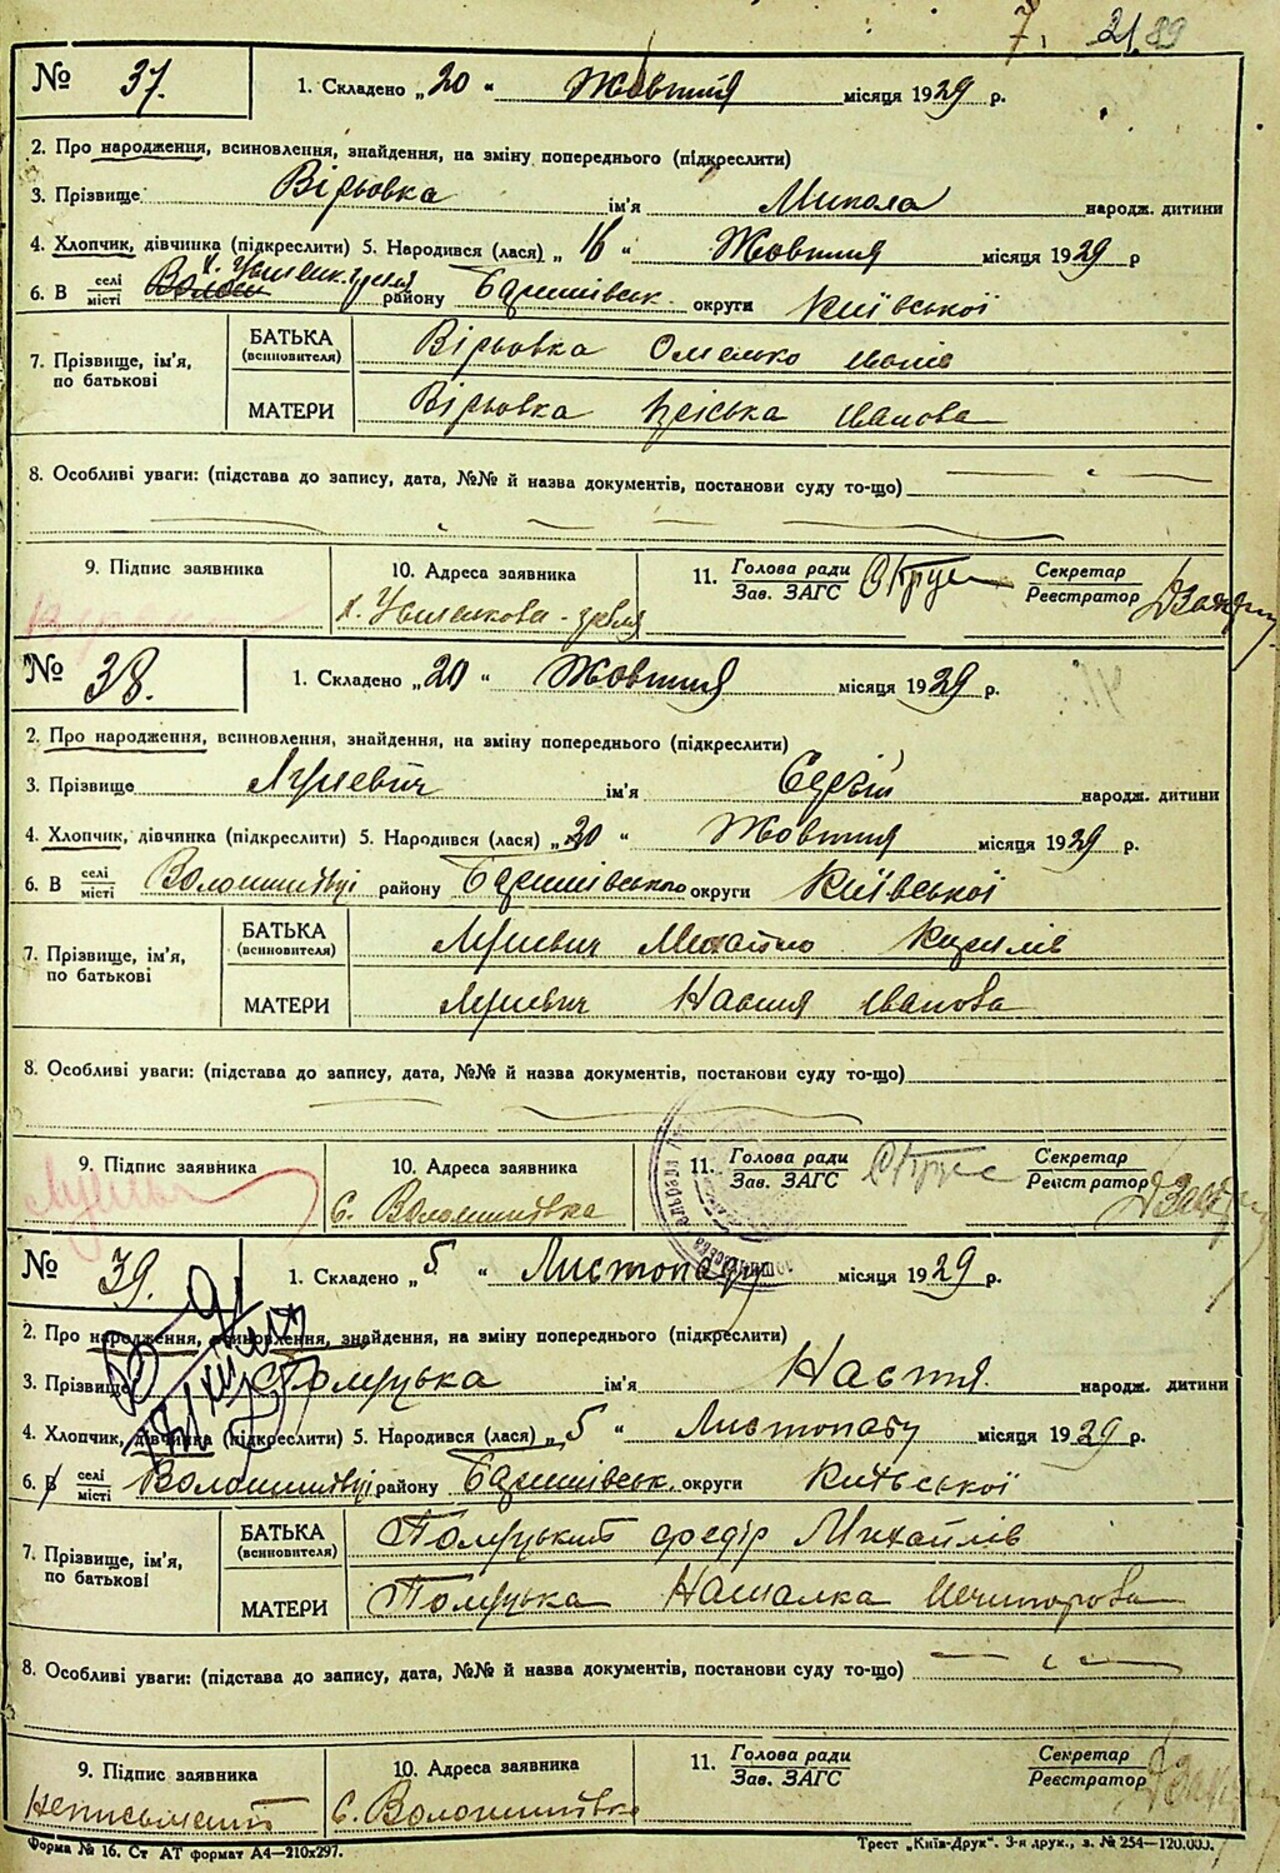 7. 21 89
№ 37. 1. Складено „20 “ Жовтня місяця 1929 р.
2. Про народження, всиновлення, знайдення, на зміну попереднього (підкреслити)
3. Прізвище Вірьовка ім'я Микола народж. дитини
4. Хлопчик, дівчинка (підкреслити) 5. Народився (лася) „ 16 “ Жовтня місяця 1929 р
6. В селі місті району Баришівськ. округи Київської
7. Прізвище, ім'я, по батькові
БАТЬКА (всиновителя) Вірьовка Омелько Іванів
МАТЕРИ Вірьовка Пріська Іванова
8. Особливі уваги: (підстава до запису, дата, №№ й назва документів, постанови суду то-що)
9. Підпис заявника 10. Адреса заявника 11. Голова ради Зав. ЗАГС Секретар Реєстратор
х.
№ 38. 1. Складено „20 “ Жовтня місяця 1929 р.
2. Про народження, всиновлення, знайдення, на зміну попереднього (підкреслити)
3. Прізвище ім'я Сергій народж. дитини
4. Хлопчик, дівчинка (підкреслити) 5. Народився (лася) „20 “ Жовтня місяця 1929 р.
6. В селі місті Волошинівці району Баришівського округи Київської
7. Прізвище, ім'я, по батькові
БАТЬКА (всиновителя) Михайло Кирилів
МАТЕРИ Настя Іванова
8. Особливі уваги: (підстава до запису, дата, №№ й назва документів, постанови суду то-що)
9. Підпис заявника 10. Адреса заявника 11. Голова ради Зав. ЗАГС Секретар Реєстратор
с. Волошинівка
№ 39. 1. Складено „5 “ Листопаду місяця 1929 р.
2. Про народження, всиновлення, знайдення, на зміну попереднього (підкреслити)
3. Прізвище Полуцька ім'я Настя. народж. дитини
4. Хлопчик, дівчинка (підкреслити) 5. Народився (лася) „ 5 “ Листопаду місяця 1929 р.
6. В селі місті Волошинівці району Баришівськ. округи Київської
7. Прізвище, ім'я, по батькові
БАТЬКА (всиновителя) Полуцький Федір Михайлів
МАТЕРИ Полуцька Наталка
8. Особливі уваги: (підстава до запису, дата, №№ й назва документів, постанови суду то-що)
9. Підпис заявника 10. Адреса заявника 11. Голова ради Зав. ЗАГС Секретар Реєстратор
Неписьмений с. Волошинівка
Форма № 16. Ст АТ формат А4—210х297. Трест „Київ-Друк“. 3-я друк., з. № 254—120.000.